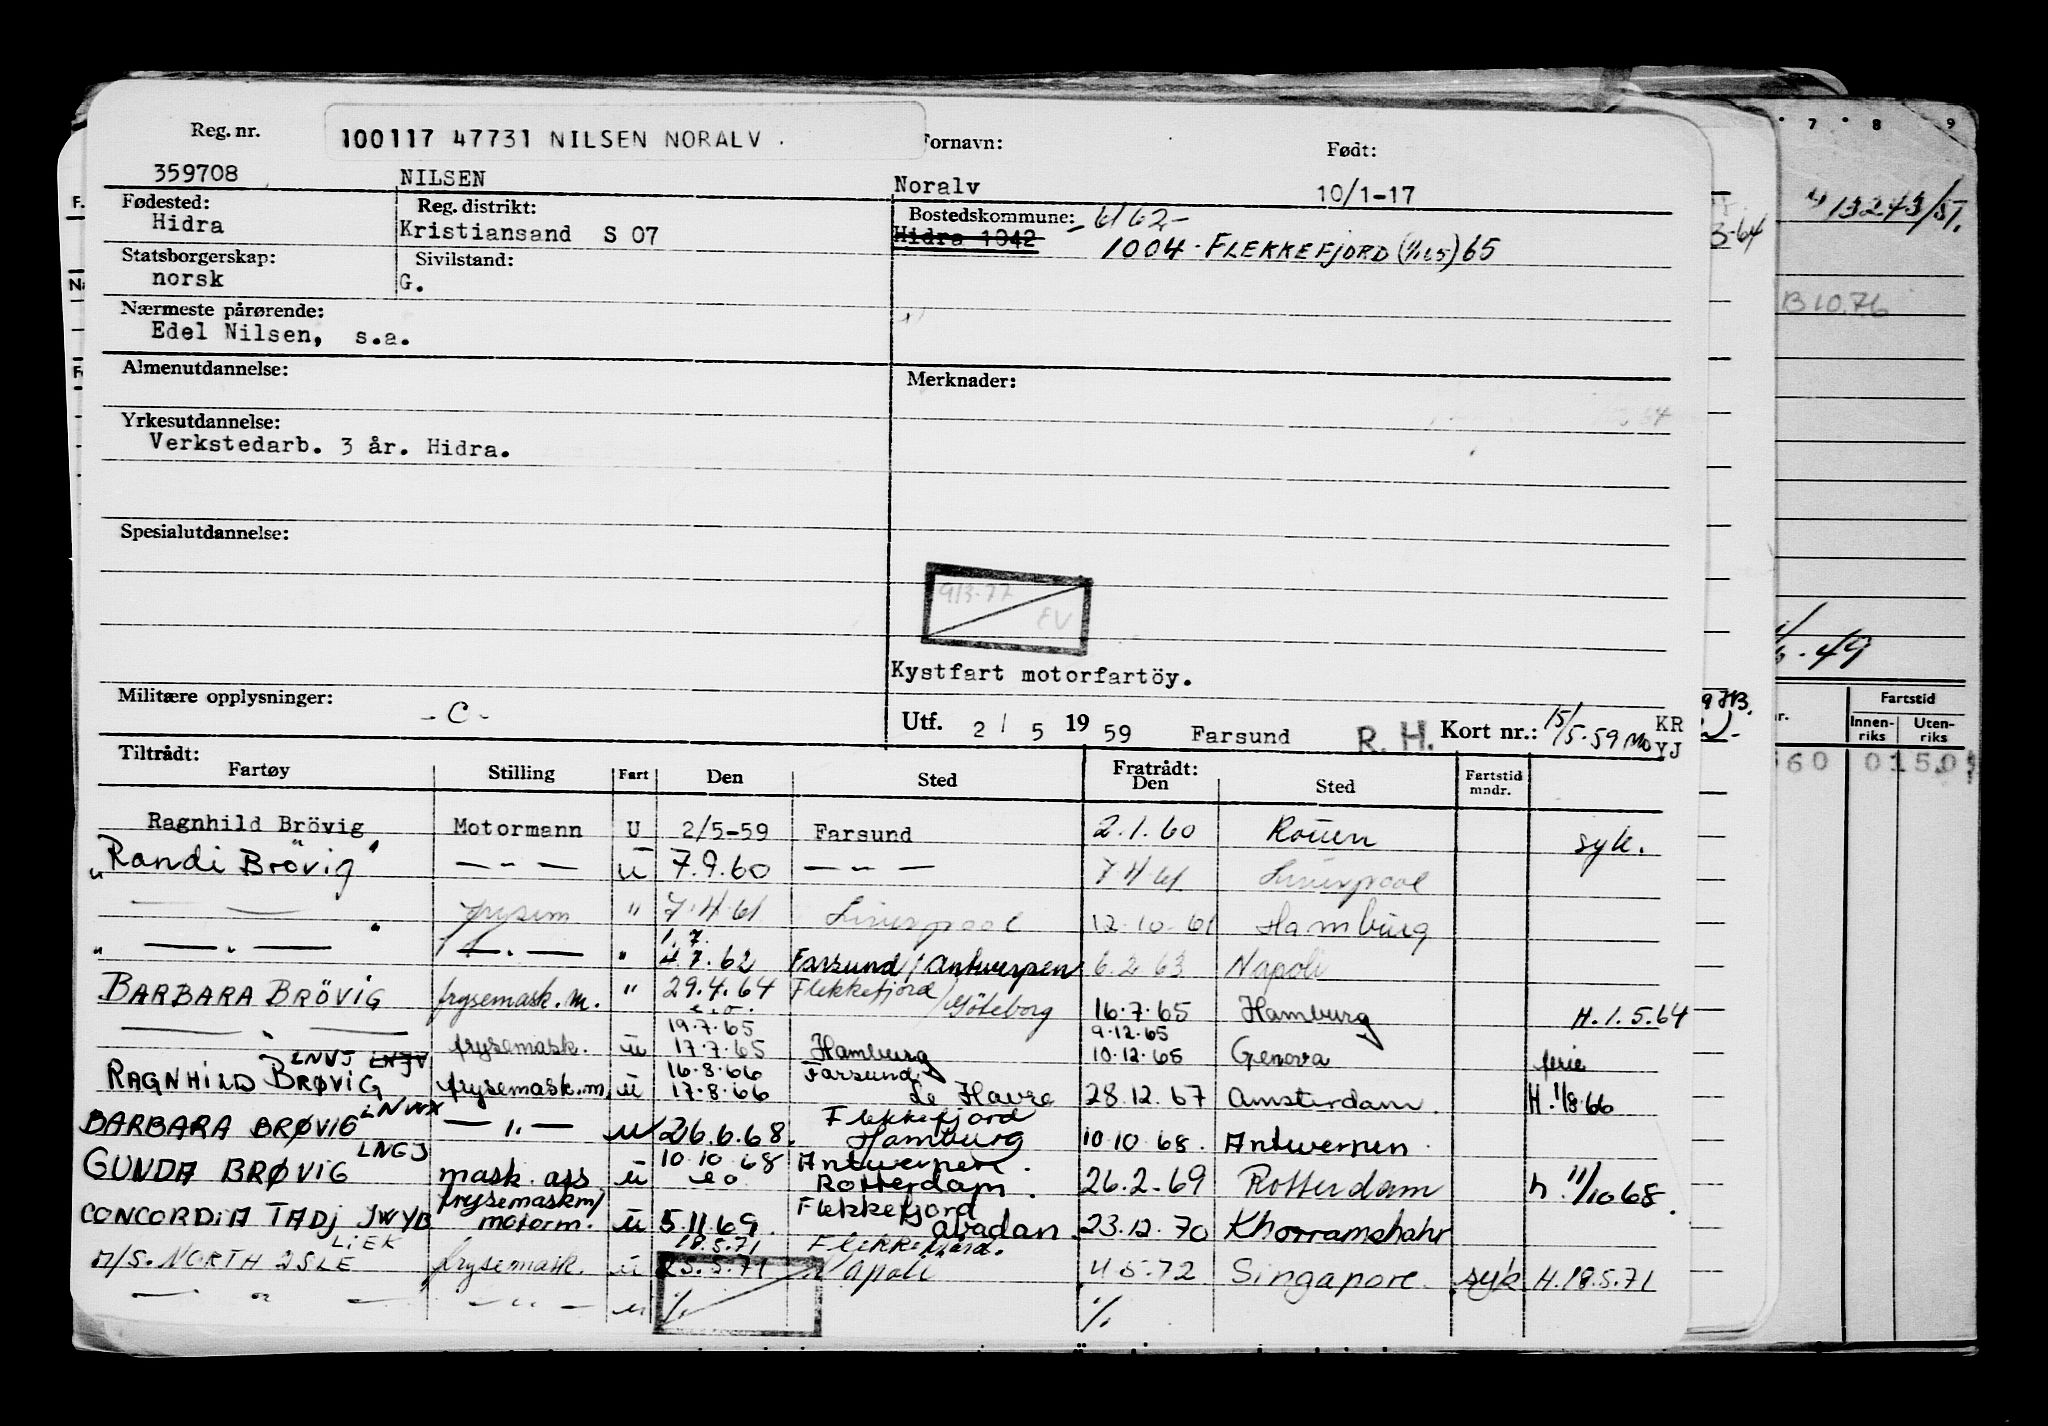 Reg. nr. 100117 47731 NILSEN NORALV Fornavn: Født:
359708 NILSEN Noralv 10/1-17
Fødested: Reg. distrikt: Bostedskommune: 6/62-
Hidra Kristiansand S 07 Hidra 1042 1004 - FLEKKEFJORD (1/1 65) 65
Statsborgerskap: Sivilstand:
norsk G.
Nærmeste pårørende:
Edel Nilsen, s.a.
Almenutdannelse: Merknader:
Yrkesutdannelse:
Verkstedarb. 3 år. Hidra.
Spesialutdannelse:
913-77
EV
Kystfart motorfartöy.
Militære opplysninger: - C -
Utf. 2 / 5 19 59 Farsund R. H. Kort nr.: 15/5-59 Mo KR YJ
Tiltrådt: Fratrådt:
Fartøy Stilling Fart Den Sted Den Sted Fartstid mndr.
Ragnhild Brövig Motormann U 2/5-59 Farsund 2.1.60 Rouen syk.
"Randi Brövig" — " — u 7.9.60 — " — 7.4.61 Liverpool
— — frysem " 7.4.61 Liverpool 12.10.61 Hamburg
1.7.
" — " — " — " — " 4.7.62 Farsund / Antwerpen 6.2.63 Napoli
BARBARA BRÖVIG frysemask.m. " 29.4.64 Flekkefjord / Göteborg 16.7.65 Hamburg H.1.5.64
19.7.65 9.12.65
— " — frysemask. u 17.7.65 Hamburg 10.12.65 Genova ferie
LNVJ LNJV 16.8.66 Farsund
RAGNHILD BRØVIG frysemask.m. u 17.8.66 Le Havre 28.12.67 Amsterdam. H.1/8 66
LNWX Flekkefjord
BARBARA BRØVIG — " — u 26.6.68. Hamburg 10.10.68. Antwerpen.
LNGJ 10.10.68 Antwerpen.
GUNDA BRØVIG mask. ass u Rotterdam. 26.2.69 Rotterdam h. 11/10 68.
frysemaskm/ Flekkefjord
CONCORDIA TADJ JWYB motorm. u 5.11.69. abadan. 23.12.70 Khorramshahr
LIEK 18.5.71 Flekkefjord.
M/S. NORTH ISLE frysemask. u 25.5.71 Napoli 4.5.72 Singapore. syk H.18.5.71
— " — — " — u %. %.
7 8 9
13243/51.
3-64
B 10.76
-49
Fartstid
Innen-riks Uten-riks
560 015.0